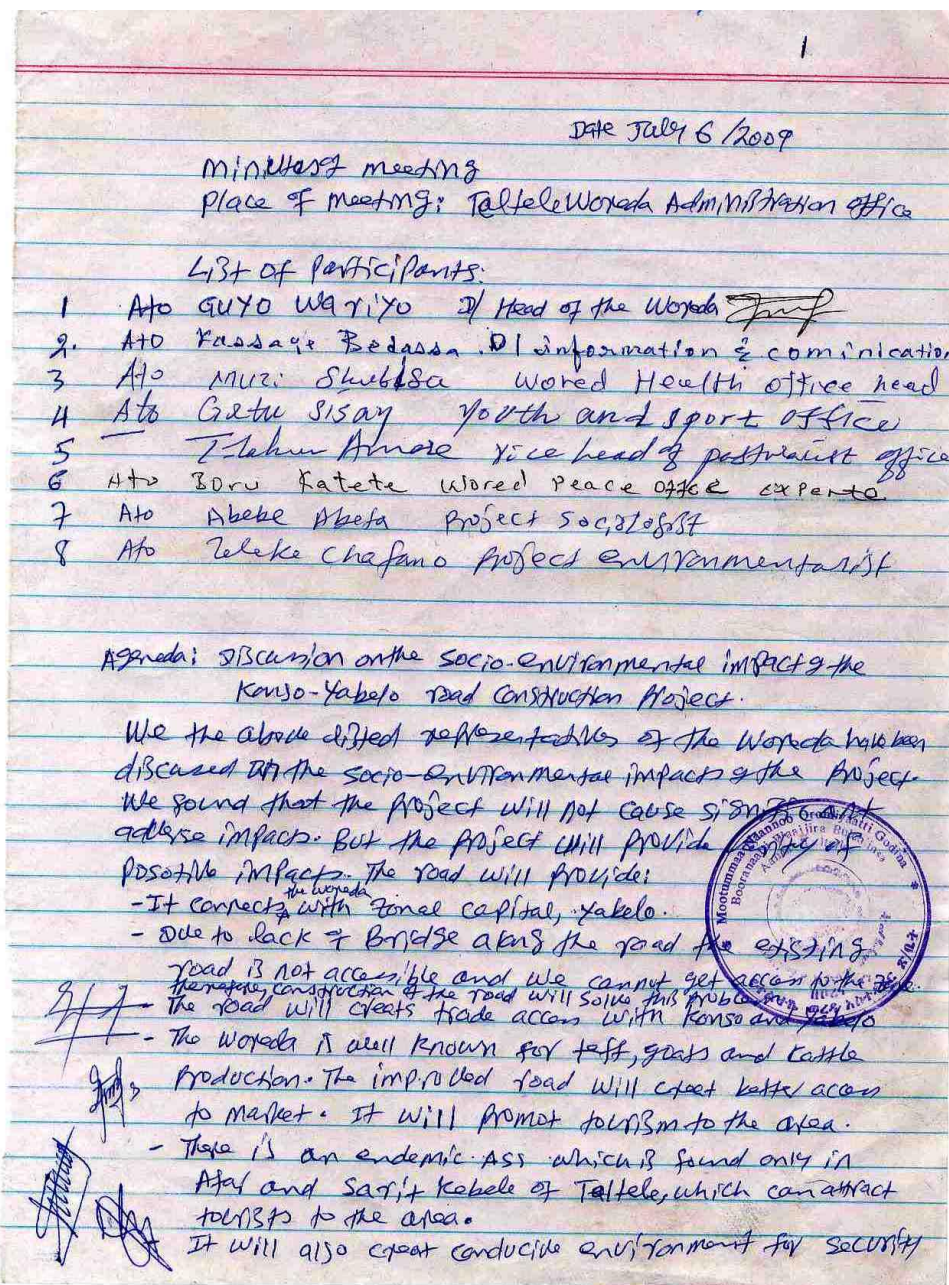 1
Date July 6/2009
Minutes of meeting
Place of meeting: Taltele Woreda Administration office
List of Participants:
1 Ato GUYO Wariyo D/ Head of the Woreda
2. Ato Kassaye Bedassa D/ information & cominication
3 Ato Muzi Shubisa Wored Health office head
4 Ato Getu Sisay Youth and sport office
5 Tilahun Amare vice head of pastoralist office
6 Ato Boru Katete Wored Peace office experte
7 Ato Abebe Abeta Project Sociologist
8 Ato Zeleke Chafano Project environmentarist
Ageneda: Discussion on the socio-environmental impact of the
Konso-Yabelo road construction Project.
We the above listed representatives of the Woreda have been
discused on the socio-environmental impacts of the Project.
We found that the Project will not cause significant
adverse impacts. But the Project will provide
posotive impacts. The road will provide:
- It connects the woreda with zonal capital, Yabelo.
- Due to lack of Bridge along the road the existing
road is not accessible and we cannot get access to the zone.
therefore, construction of the road will solve this problem
- The road will creats trade access with Konso and Yabelo
- The woreda is well known for teff, goats and kattle
Production. The improved road will creat better access
to market. It will promot tourism to the area.
- There is an endemic Ass which is found only in
Afar and Sarit Kebele of Taltele, which can attract
tourists to the area.
It will also creat conducive environment for security
Mootummaa Naannoo Oromiyaatti Godina
Booranaatti